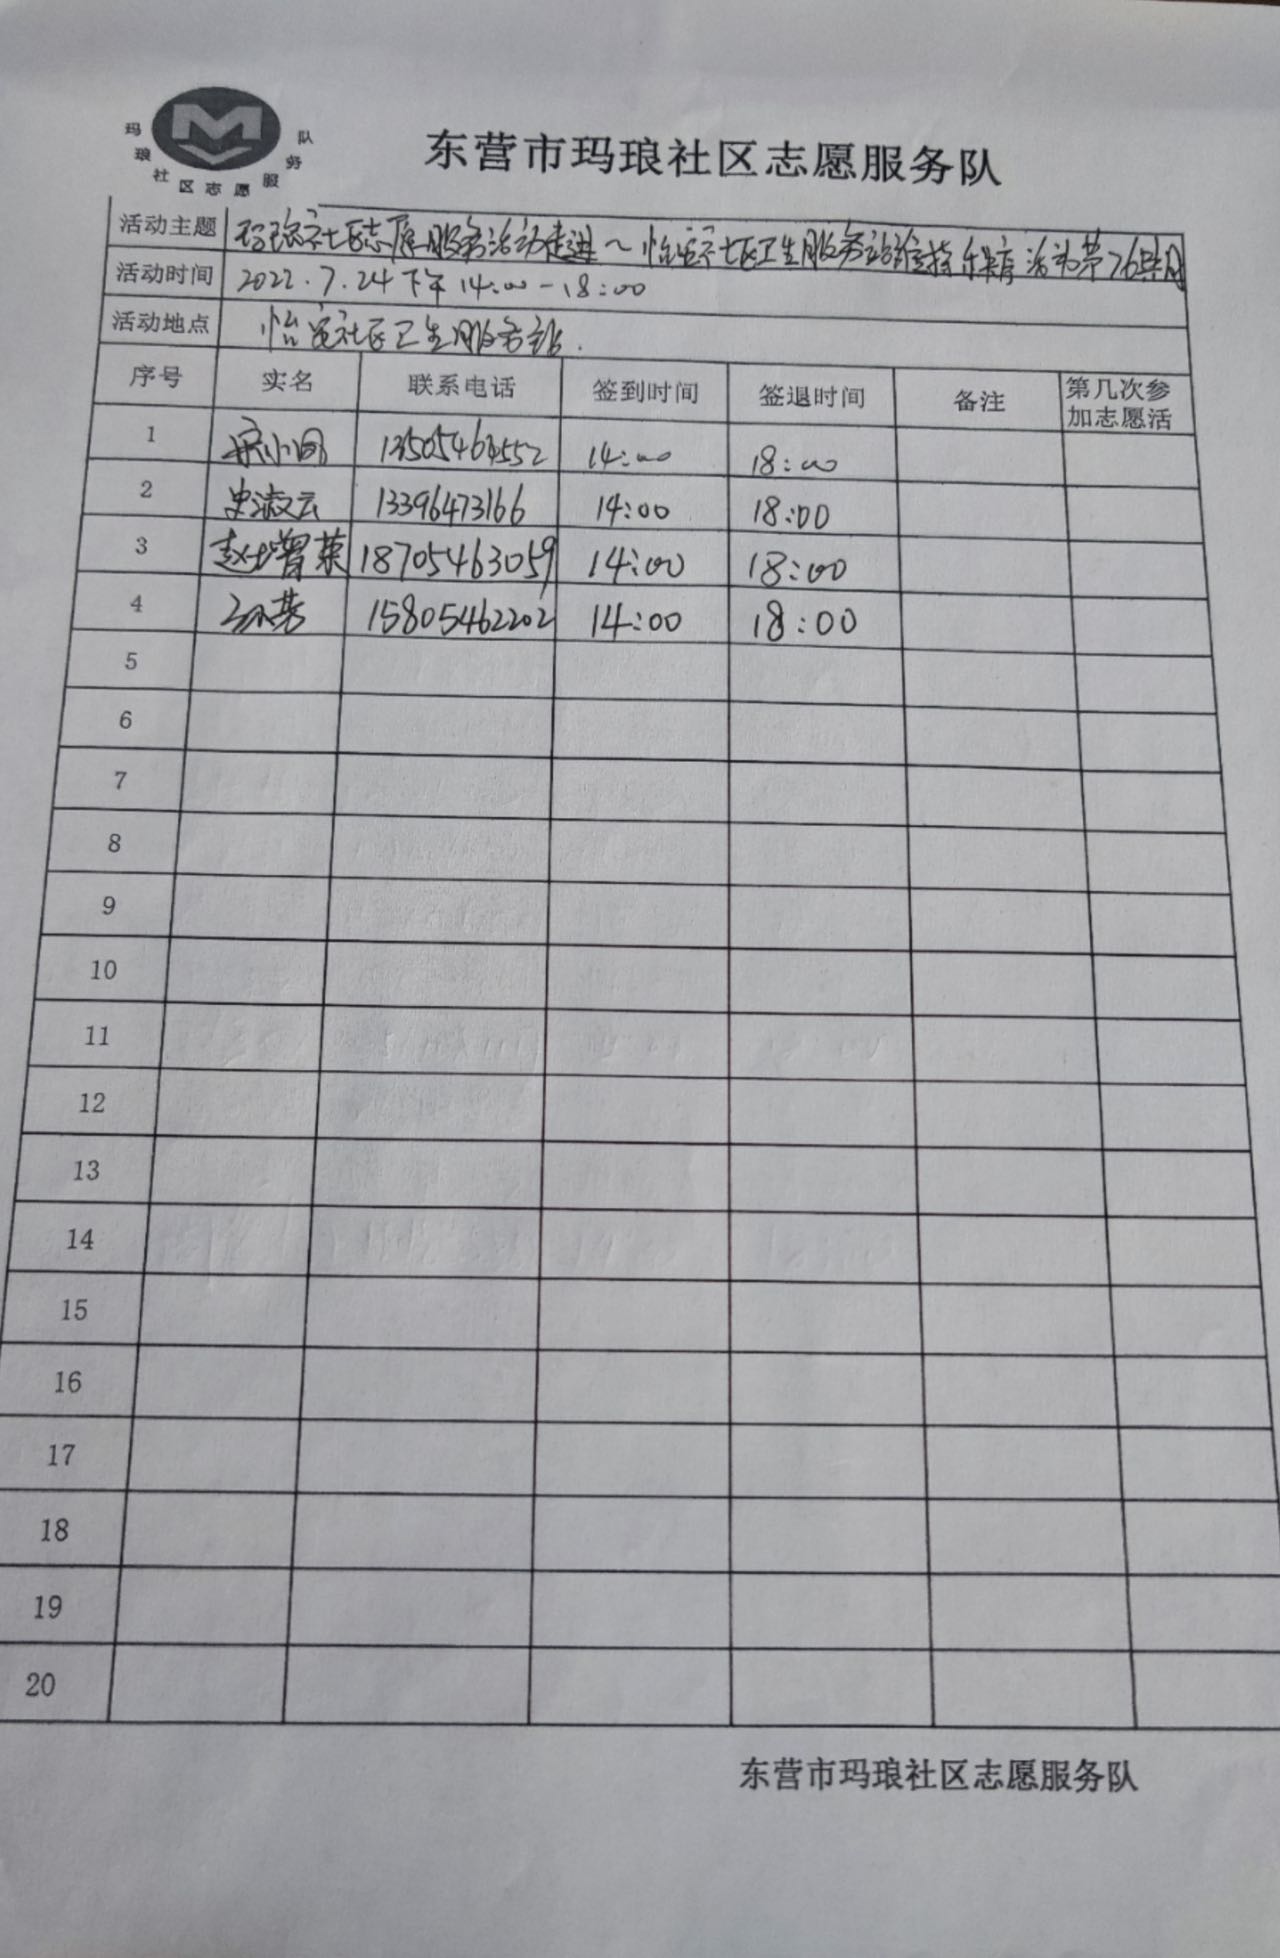 玛琅社区志愿服务队
东营市玛琅社区志愿服务队
活动主题 玛琅社区志愿服务活动走进~怡宛社区卫生服务站维持秩序活动第76期
活动时间 2022.7.24下午14:00-18:00
活动地点 怡宛社区卫生服务站.
序号 实名 联系电话 签到时间 签退时间 备注 第几次参
加志愿活
1 14:00 18:00
2 史淑云 13396473166 14:00 18:00
3 赵增荣 18705463059 14:00 18:00
4 孙芳 15805462202 14:00 18:00
5
6
7
8
9
10
11
12
13
14
15
16
17
18
19
20
东营市玛琅社区志愿服务队